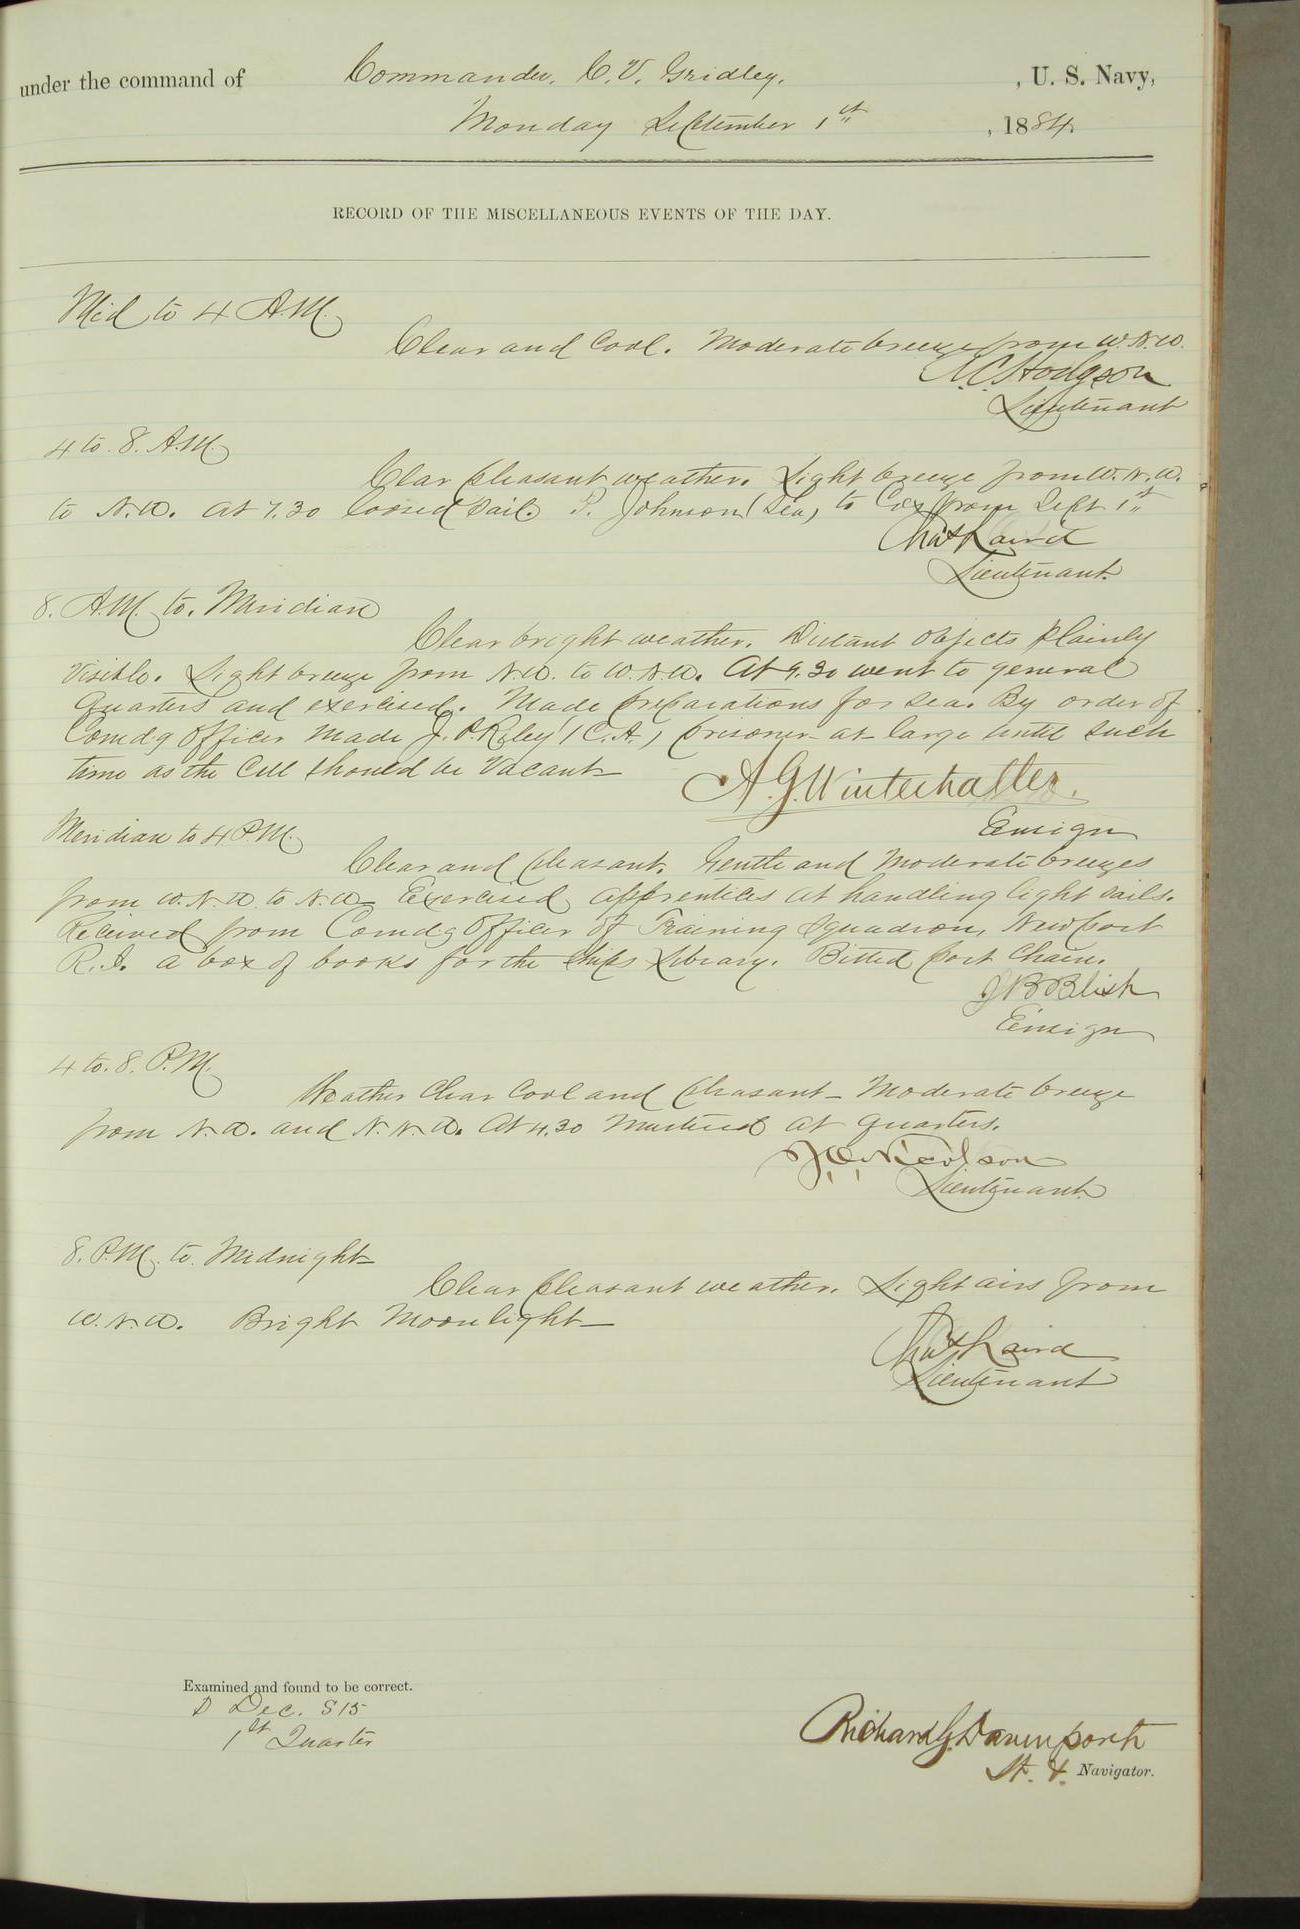 under the command of Commander. C. V. Gridley. , U. S. Navy,
Monday September 1st , 1884.
RECORD OF THE MISCELLANEOUS EVENTS OF THE DAY.
Mid to 4 A.M.
Clear and Cool. Moderate breeze from W.N.W.
Hodgson
Lieutenant
4 to. 8. A.M.
Clear pleasant weather. Light breeze from W.N.W.
to N.W. At 7.30 loosed sail. P. Johnson (Sea) to Cox from Sept 1st
Chas Laird
Lieutenant.
8. A.M. to. Meridian
Clear bright weather. Distant objects plainly
visible. Light breeze from N.W. to W.N.W. At 9.30 went to general
Quarters and exercised. Made preparations for sea. By order of
Comdg Officer made J. P. Riley (C.A.) prisoner at large until such
time as the Cell should be Vacant
A. G. Winterhalter.
Ensign
Meridian to 4 P.M.
Clear and pleasant. Gentle and Moderate breezes
from W.N.W. to N.W. Exercised apprentices at handling light sails.
Received from Comdg Officer of Training Squadron, Newport
R.I. a box of books for the Ships Library. Bitted port Chain.
J B Blish
Ensign
4 to. 8. P.M.
Weather Clear Cool and pleasant - Moderate breeze
from N.W. and N.N.W. At 4.30 Mustered at quarters.
Nicolson
Lieutenant.
8. P.M. to. Midnight
Clear pleasant weather. Light airs from
W.N.W. Bright Moonlight -
Chas Laird
Lieutenant
Examined and found to be correct.
D Dec. S 15
1st Quarter
Richard G. Davenport
Lt. & Navigator.